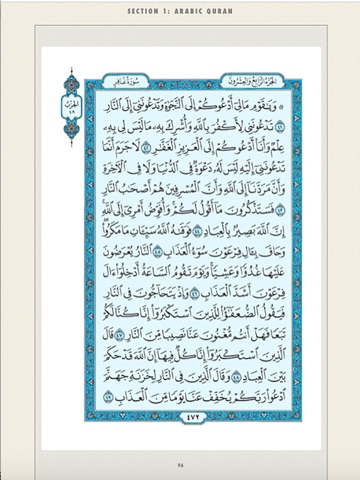 SECTION 1: ARABIC QURAN
الجزء الرابع والعشرون
سورة غافر
الحزب
٤٨
۞ وَيَٰقَوْمِ مَا لِىٓ أَدْعُوكُمْ إِلَى ٱلنَّجَوٰةِ وَتَدْعُونَنِىٓ إِلَى ٱلنَّارِ
٤١ تَدْعُونَنِى لِأَكْفُرَ بِٱللَّهِ وَأُشْرِكَ بِهِۦ مَا لَيْسَ لِى بِهِۦ
عِلْمٌ وَأَنَا۠ أَدْعُوكُمْ إِلَى ٱلْعَزِيزِ ٱلْغَفَّٰرِ ٤٢ لَا جَرَمَ أَنَّمَا
تَدْعُونَنِىٓ إِلَيْهِ لَيْسَ لَهُۥ دَعْوَةٌ فِى ٱلدُّنْيَا وَلَا فِى ٱلْءَاخِرَةِ
وَأَنَّ مَرَدَّنَآ إِلَى ٱللَّهِ وَأَنَّ ٱلْمُسْرِفِينَ هُمْ أَصْحَٰبُ ٱلنَّارِ
٤٣ فَسَتَذْكُرُونَ مَآ أَقُولُ لَكُمْ وَأُفَوِّضُ أَمْرِىٓ إِلَى ٱللَّهِ
إِنَّ ٱللَّهَ بَصِيرٌۢ بِٱلْعِبَادِ ٤٤ فَوَقَىٰهُ ٱللَّهُ سَيِّـَٔاتِ مَا مَكَرُوا۟
وَحَاقَ بِـَٔالِ فِرْعَوْنَ سُوٓءُ ٱلْعَذَابِ ٤٥ ٱلنَّارُ يُعْرَضُونَ
عَلَيْهَا غُدُوًّا وَعَشِيًّا وَيَوْمَ تَقُومُ ٱلسَّاعَةُ أَدْخِلُوٓا۟ ءَالَ
فِرْعَوْنَ أَشَدَّ ٱلْعَذَابِ ٤٦ وَإِذْ يَتَحَآجُّونَ فِى ٱلنَّارِ
فَيَقُولُ ٱلضُّعَفَٰٓؤُا۟ لِلَّذِينَ ٱسْتَكْبَرُوٓا۟ إِنَّا كُنَّا لَكُمْ
تَبَعًا فَهَلْ أَنتُم مُّغْنُونَ عَنَّا نَصِيبًا مِّنَ ٱلنَّارِ ٤٧ قَالَ
ٱلَّذِينَ ٱسْتَكْبَرُوٓا۟ إِنَّا كُلٌّ فِيهَآ إِنَّ ٱللَّهَ قَدْ حَكَمَ
بَيْنَ ٱلْعِبَادِ ٤٨ وَقَالَ ٱلَّذِينَ فِى ٱلنَّارِ لِخَزَنَةِ جَهَنَّمَ
ٱدْعُوا۟ رَبَّكُمْ يُخَفِّفْ عَنَّا يَوْمًا مِّنَ ٱلْعَذَابِ ٤٩
٤٧٢